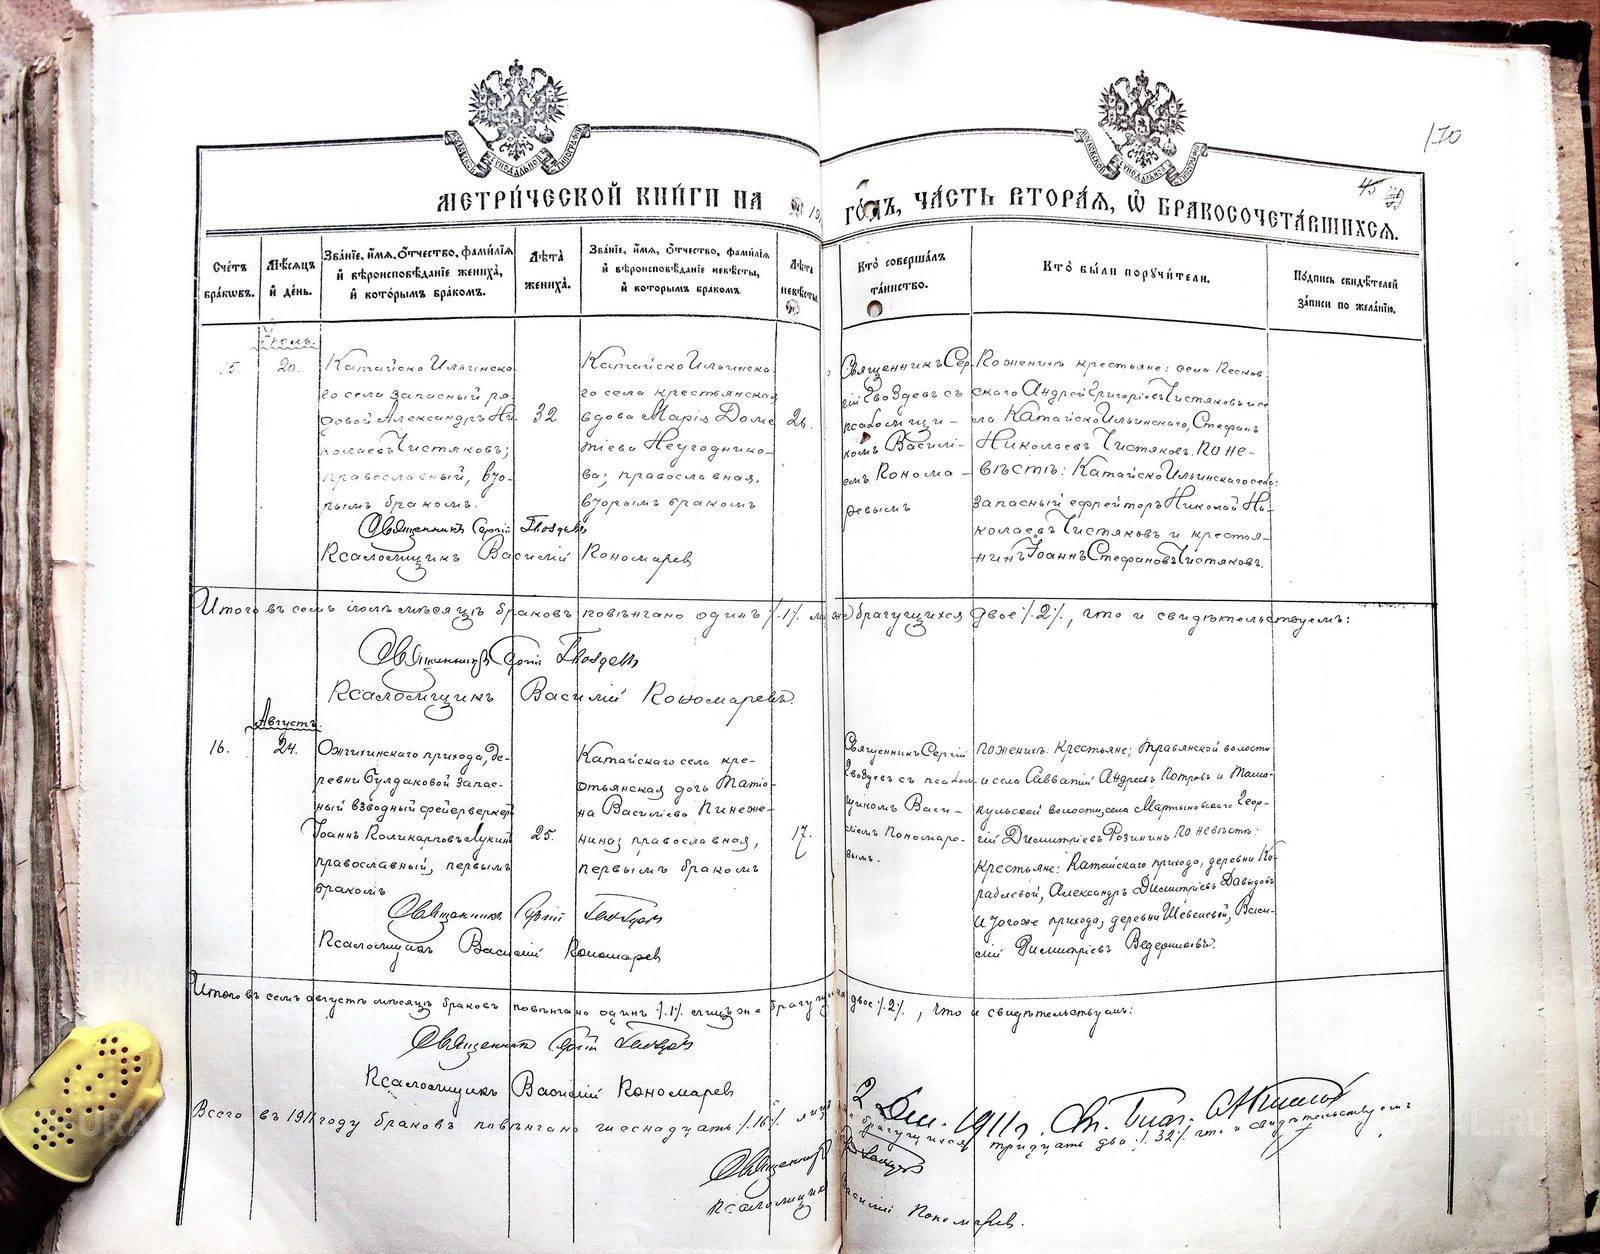 170
МЕТРИЧЕСКОЙ КНИГИ НА 191 ГОДЪ, ЧАСТЬ ВТОРАЯ, Ѡ БРАКОСОЧЕТАВШИХСЯ.
45
Счетъ браковъ.
Мѣсяцъ и день.
Званіе, имя, отчество, фамилія и вѣроисповѣданіе жениха, и которымъ бракомъ.
Лѣта жениха.
Званіе, имя, отчество, фамилія и вѣроисповѣданіе невѣсты, и которымъ бракомъ
Лѣта невѣсты
Кто совершалъ таинство.
Кто были поручители.
Подпись свидѣтелей записи по желанію.
Іюль.
15.
20.
КатайскоИльинска-
го села запасный ря-
довой Александръ Ни-
колаевъ Чистяковъ;
православный, вто-
рымъ бракомъ.
32
КатайскоИльинска-
го села крестьянская
вдова Марія Доме-
тіева Неугоднико-
ва; православная,
вторымъ бракомъ
26.
Священникъ Сер-
гій Гвоздевъ съ
псаломщи-
комъ Василі-
емъ Конома-
ревымъ
По женихѣ крестьяне: села Песков-
скаго Андрей Григоріевъ Чистяковъ и се-
ла КатайскоИльинскаго, Стефанъ
Николаевъ Чистяков. По не-
вѣстѣ: КатайскоИльинскаго села:
запасный ефрейторъ Николай Ни-
колаевъ Чистяковъ и крестья-
нинъ Іоаннъ Стефановъ Чистяковъ.
Священникъ Сергій Гвоздевъ
Псаломщикъ Василій Кономарев
Итого въ семъ іюлѣ мѣсяцѣ браковъ повѣнчано одинъ /.1/. лицъ же брачущихся двое /.2/., что и свидѣтельствуемъ:
Священникъ Сергій Гвоздевъ
Псаломщикъ Василій Кономаревъ.
Августъ.
16.
24.
Ожгихинскаго прихода, де-
ревни Булдаковой запас-
ный взводный фейерверкеръ
Іоаннъ Поликарповъ Лукинъ
православный, первымъ
бракомъ
25.
Катайскаго села кре-
стьянская дочь Татіа-
на Василіева Пинеже-
нина; православная,
первымъ бракомъ
17.
Священникъ Сергій
Гвоздевъ съ псалом-
щикомъ Васи-
ліемъ Кономаре-
вымъ.
По женихѣ: крестьяне: Травянской волости
и села Савватій Андреевъ Потровъ и Тама-
кульской волости, села Мартыновскаго Геор-
гій Димитріевъ Розинин. По невѣстѣ:
крестьяне: Катайскаго прихода, деревни Ко-
раблевой, Александръ Димитріевъ Давыдовъ
и того же прихода, деревни Шевелевой, Васи-
лій Димитріевъ Ведерниковъ.
Священникъ Сергій Гвоздевъ
Псаломщикъ Василій Кономарев
Итого въ семъ августѣ мѣсяцѣ браковъ повѣнчано одинъ /.1/. лицъ же брачущихся двое /.2/., что и свидѣтельствуемъ:
Священникъ Сергій Гвоздевъ
Псаломщикъ Василій Кономарев
2 1911 г. Св. Благ.
Всего въ 1911 году браковъ повѣнчано шеснадцать /.16/. лицъ же брачущихся тридцать два /.32/. что и свидѣтельствуемъ
Священникъ Гвоздевъ
Псаломщикъ Василій Кономарев.